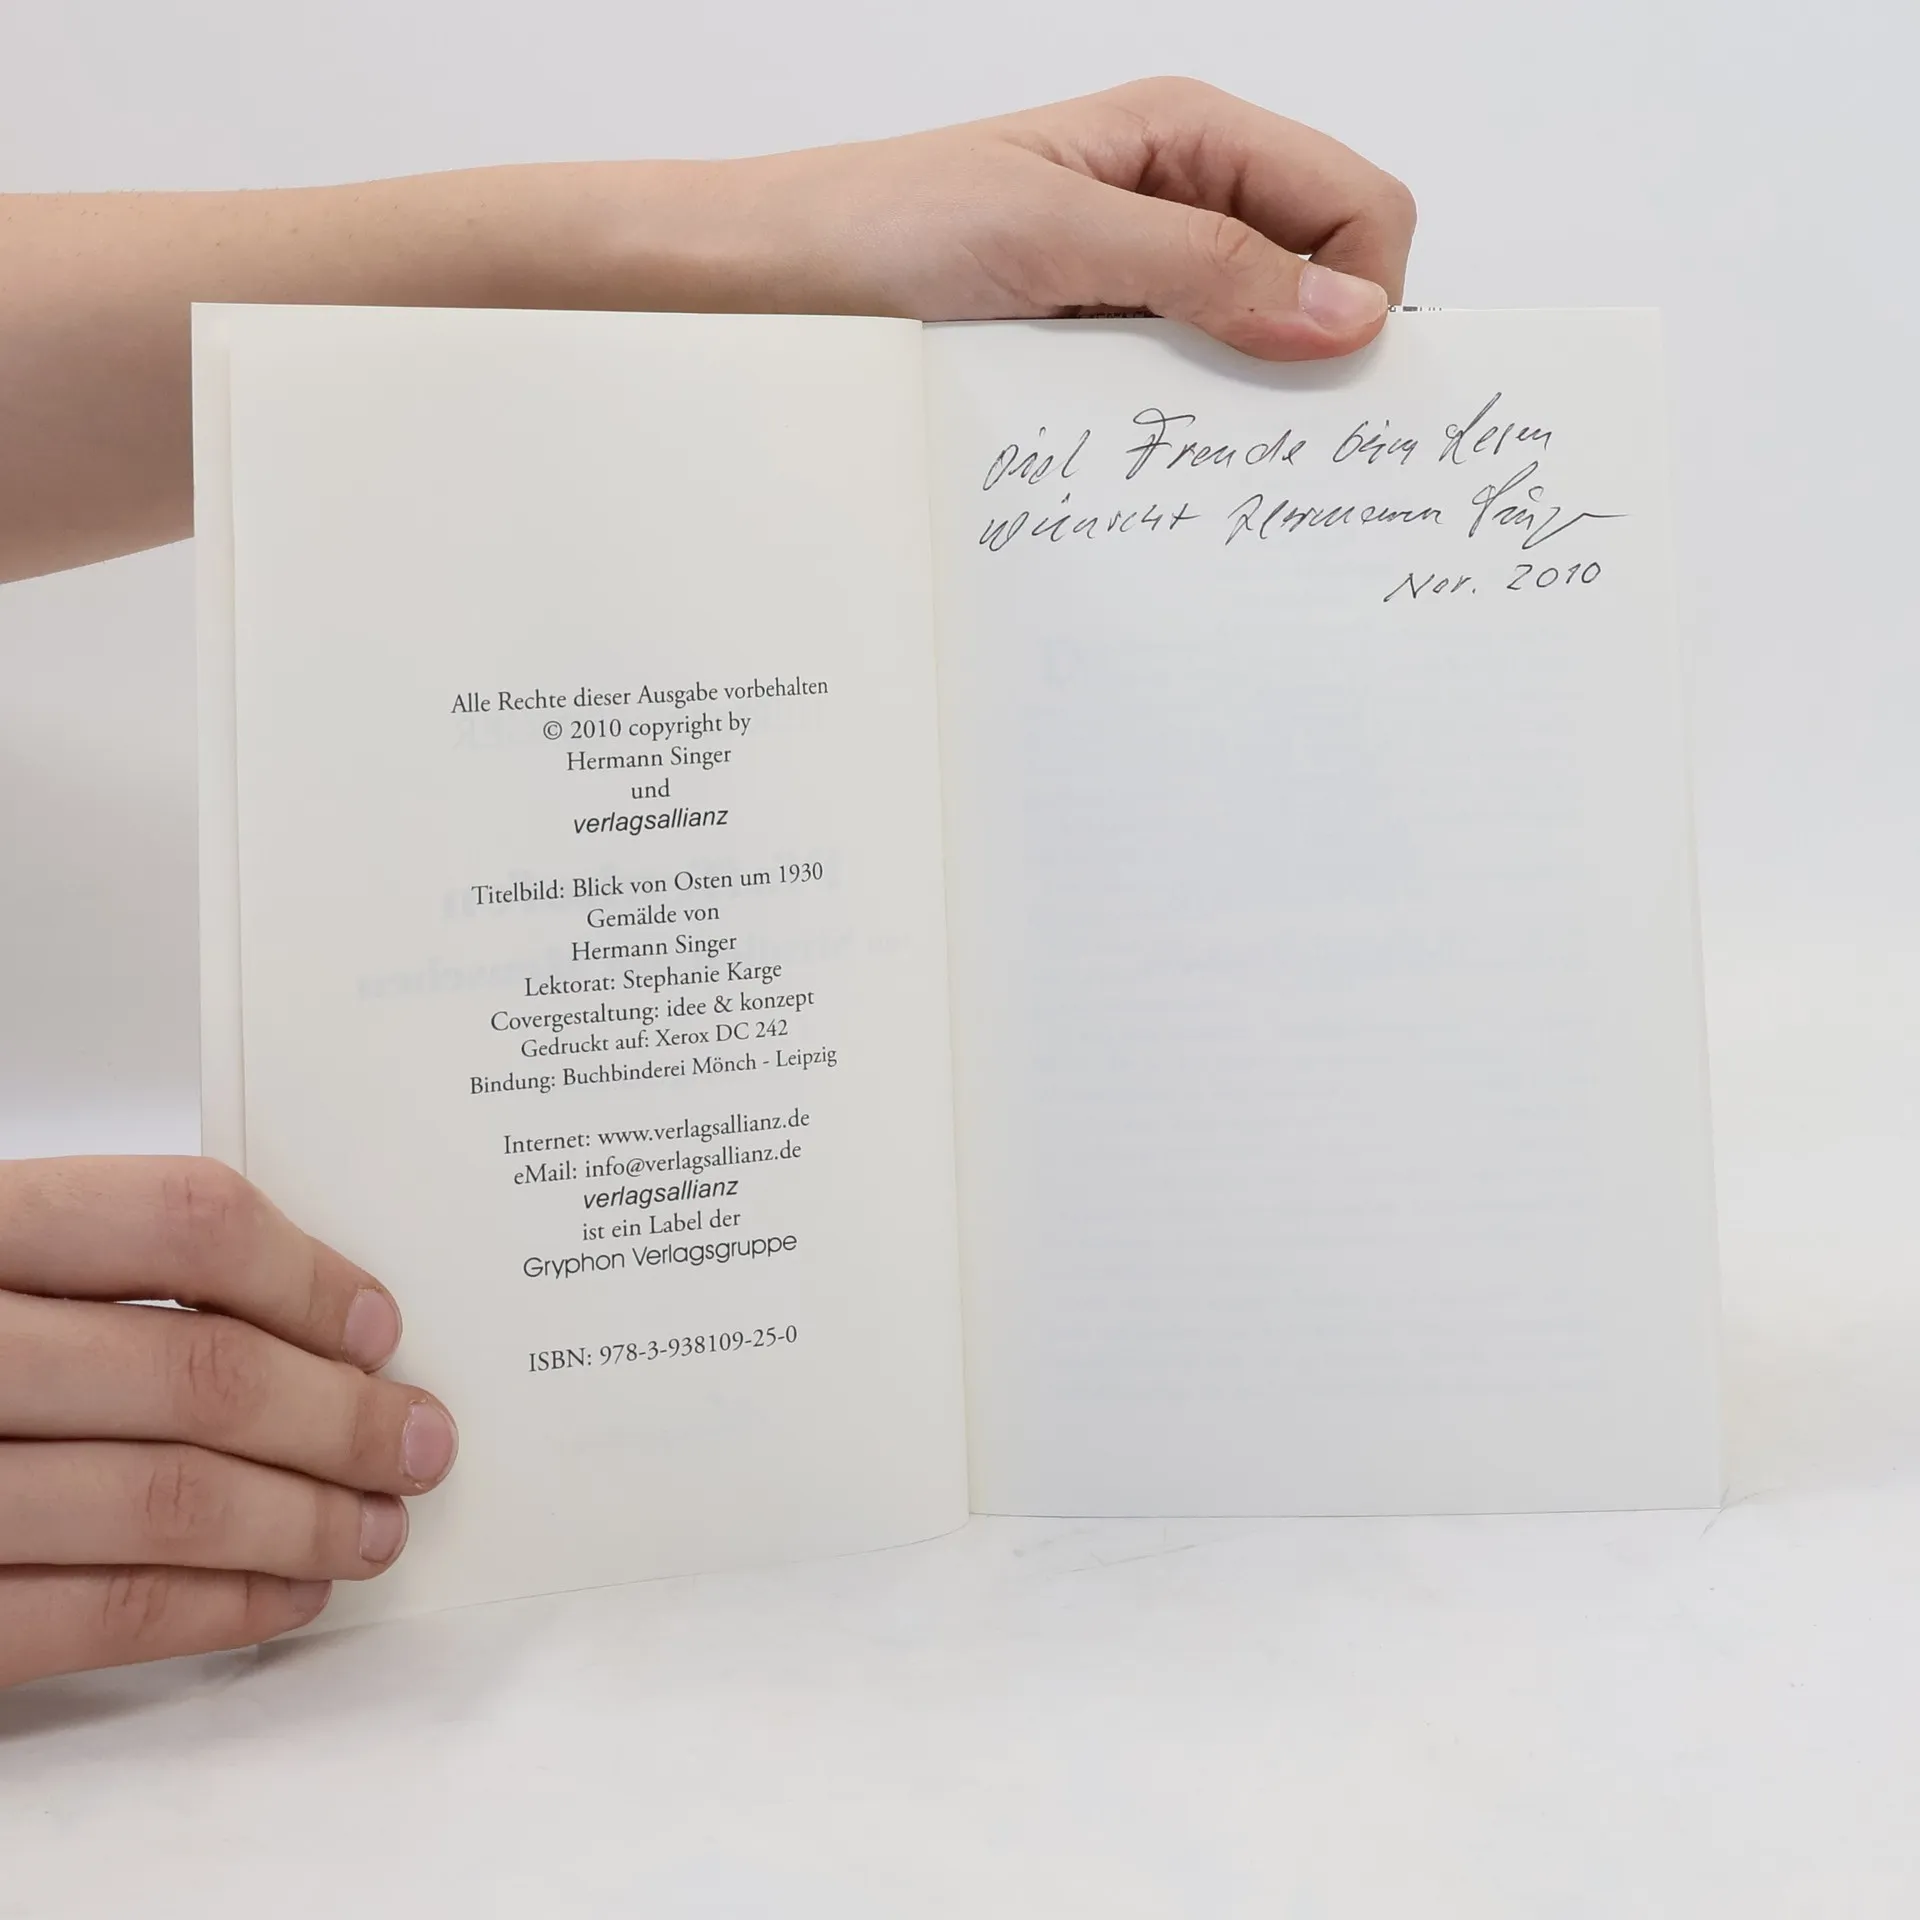 Alle Rechte dieser Ausgabe vorbehalten
© 2010 copyright by
Hermann Singer
und
verlagsallianz
Titelbild: Blick von Osten um 1930
Gemälde von
Hermann Singer
Lektorat: Stephanie Karge
Covergestaltung: idee & konzept
Gedruckt auf: Xerox DC 242
Bindung: Buchbinderei Mönch - Leipzig
Internet: www.verlagsallianz.de
eMail: info@verlagsallianz.de
verlagsallianz
ist ein Label der
Gryphon Verlagsgruppe
ISBN: 978-3-938109-25-0
Viel Freude beim Lesen
wünscht Hermann Singer
Nov. 2010